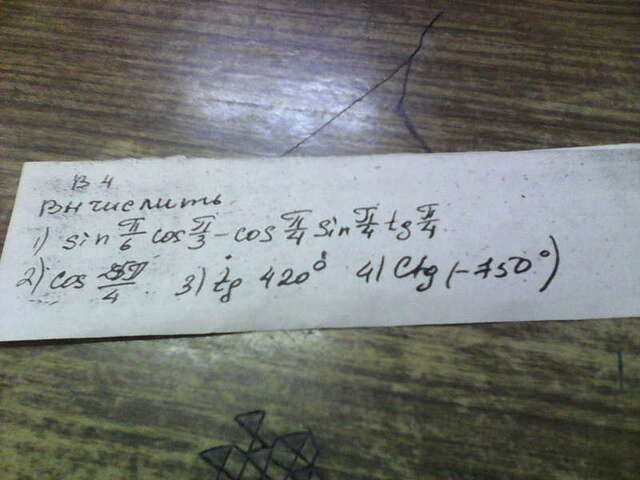 В 4
Вычислить
1) sin π/6 cos π/3 - cos π/4 sin π/4 tg π/4
2) cos π/4 3) tg 420° 4) Ctg (-750°)